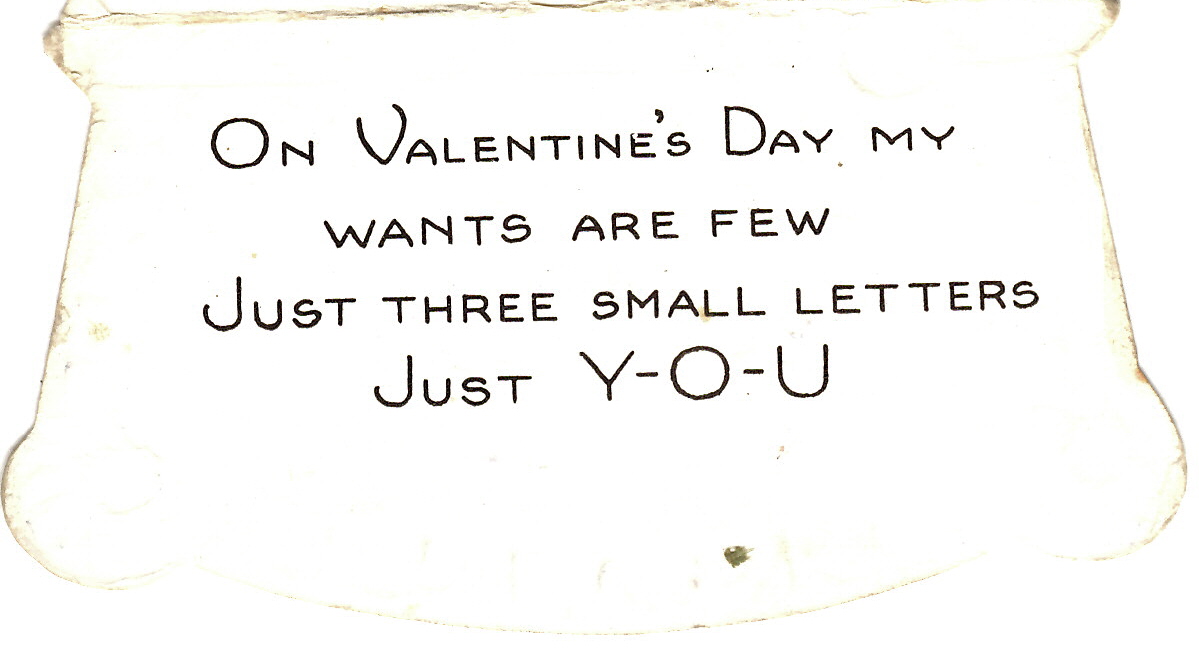 On Valentine's Day my
wants are few
Just three small letters
Just Y-O-U